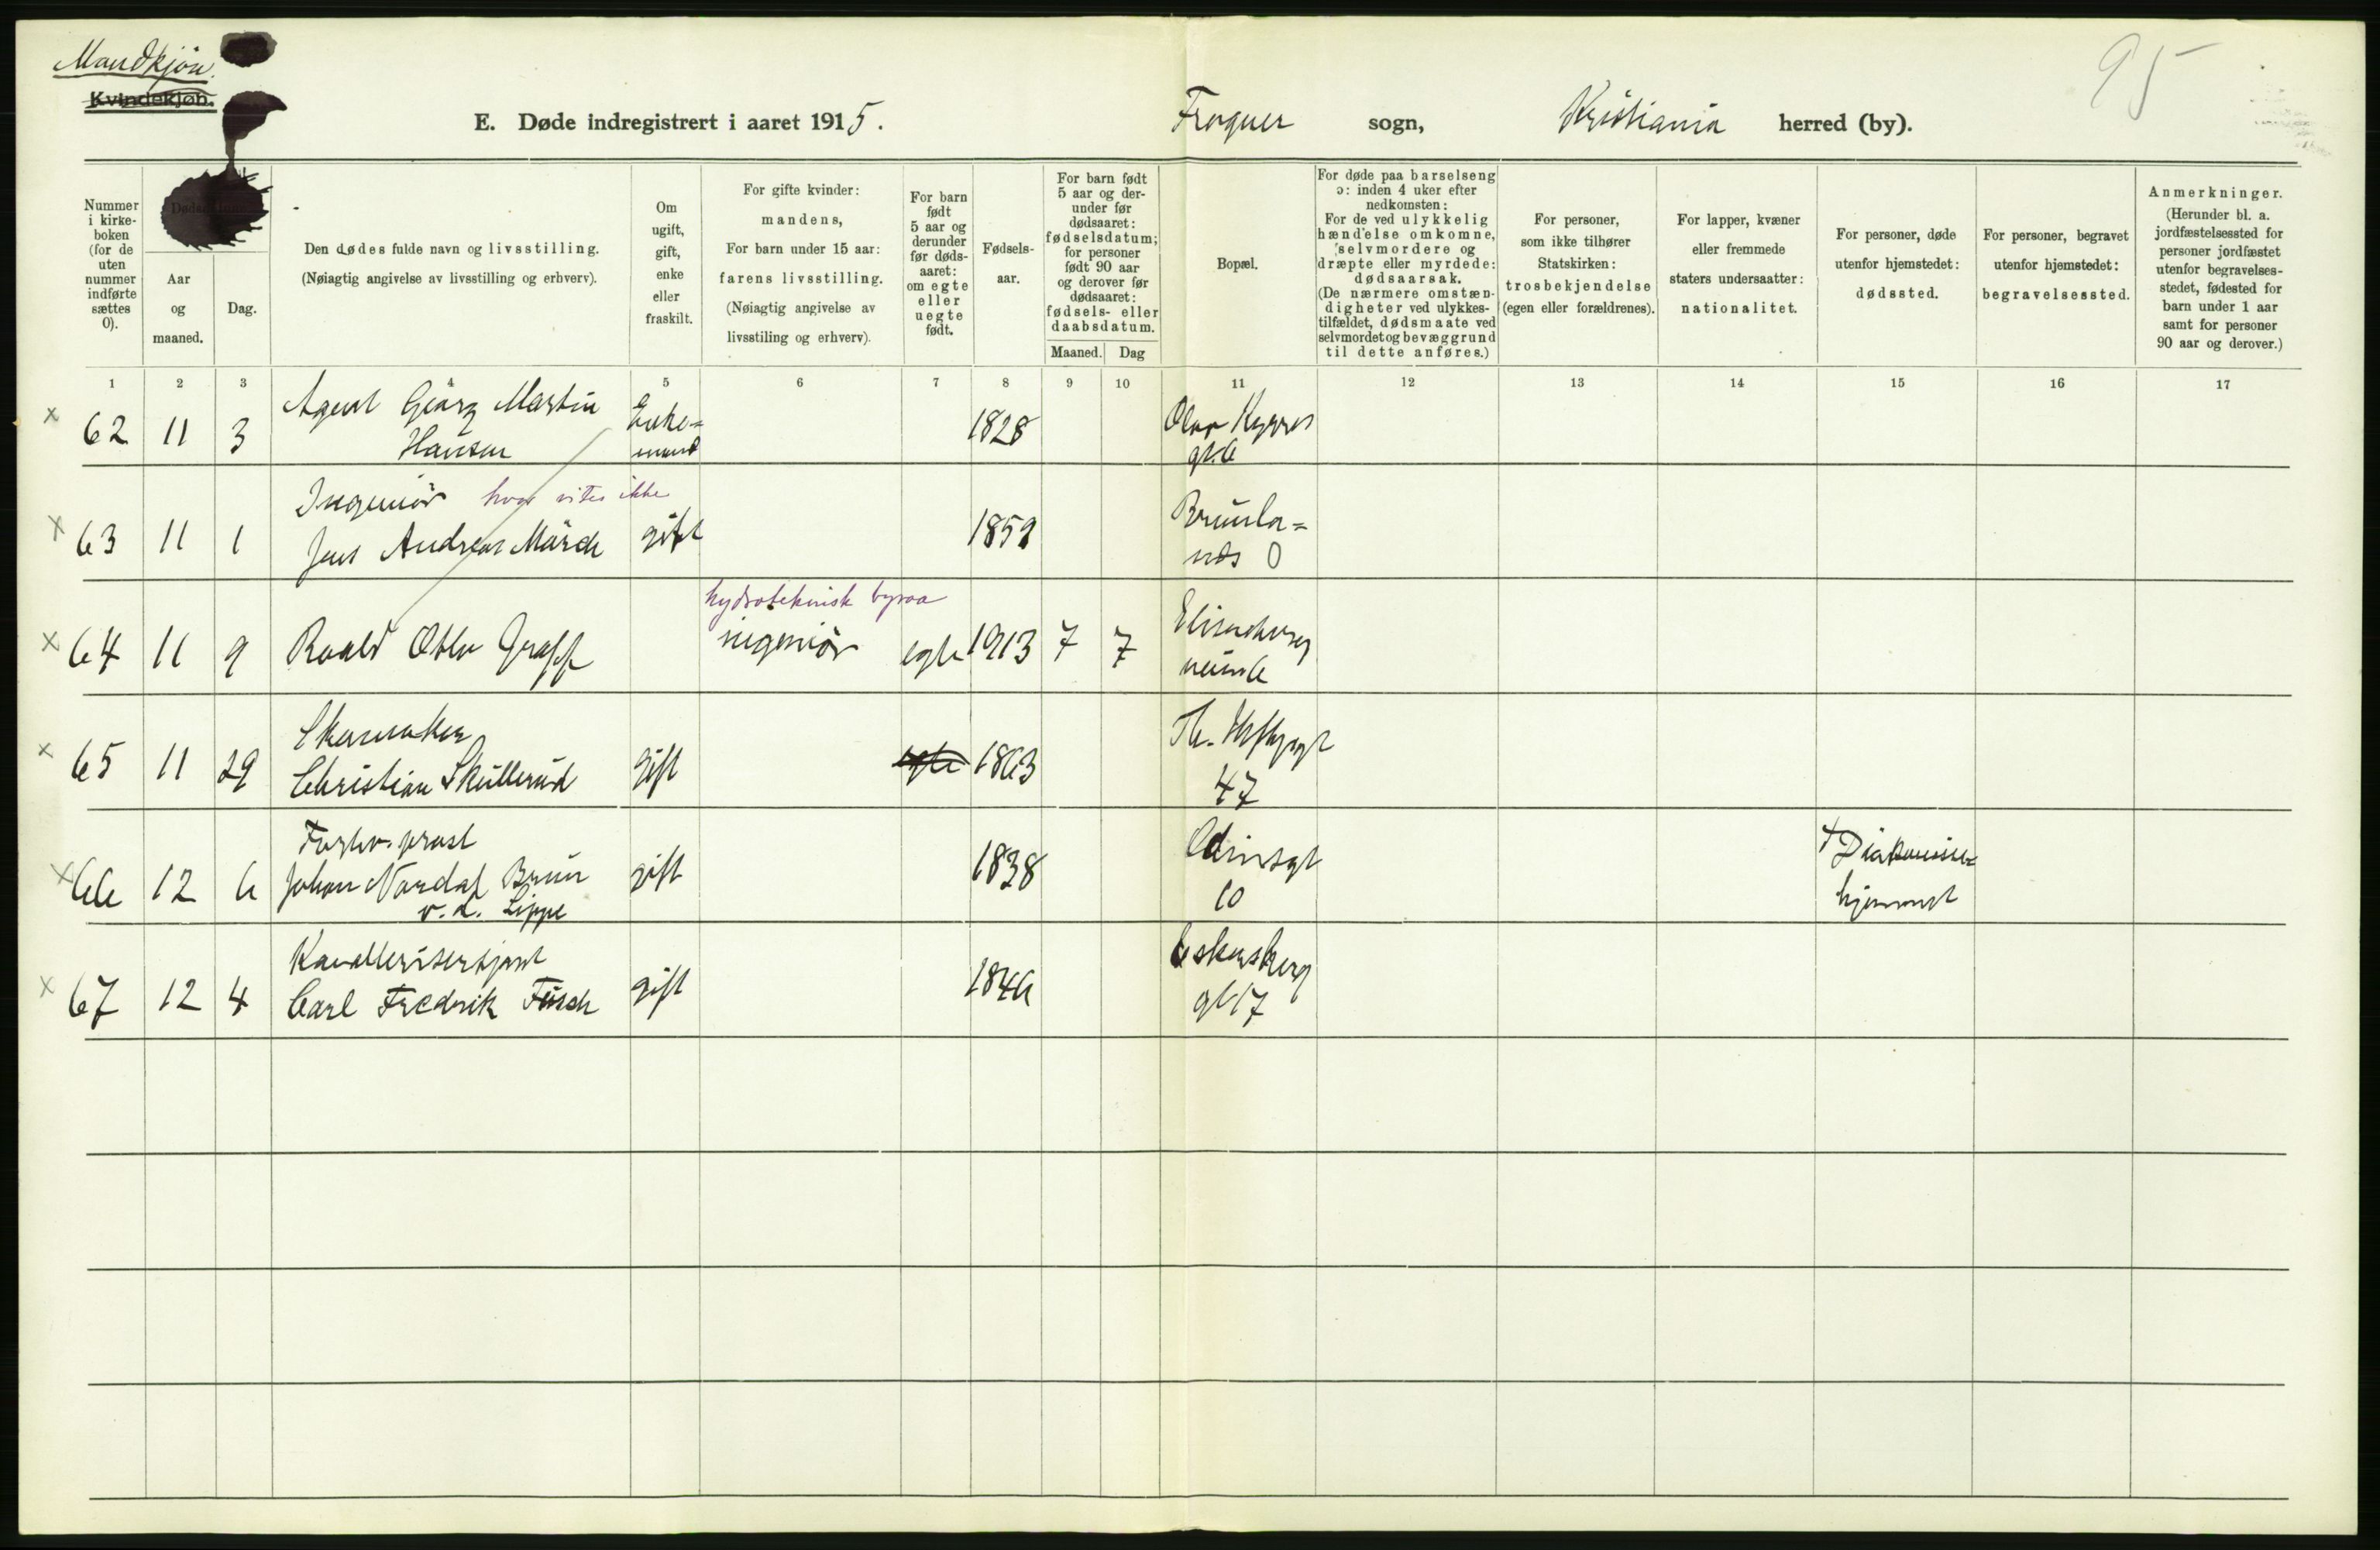 Mandkjøn.
Kvindekjøn.
95
E. Døde indregistrert i aaret 1915. Frogner sogn, Kristiania herred (by).
Nummer i kirke-boken (for de uten nummer indførte sættes 0).
Aar og maaned.
Dag.
Den dødes fulde navn og livsstilling.
(Nøiagtig angivelse av livsstilling og erhverv).
Om ugift, gift, enke eller fraskilt.
For gifte kvinder: mandens,
For barn under 15 aar: farens livsstilling.
(Nøiagtig angivelse av livsstiling og erhverv).
For barn født 5 aar og derunder før døds-aaret: om egte eller uegte født.
Fødsels-aar.
For barn født 5 aar og der-under før dødsaaret: fødselsdatum; for personer født 90 aar og derover før dødsaaret: fødsels- eller daabsdatum.
Maaned. Dag
Bopæl.
For døde paa barselseng ɔ: inden 4 uker efter nedkomsten:
For de ved ulykkelig hændelse omkomne, selvmordere og dræpte eller myrdede: dødsaarsak.
(De nærmere omstæn-digheter ved ulykkes-tilfældet, dødsmaate ved selvmordet og bevæggrund til dette anføres.)
For personer, som ikke tilhører Statskirken: trosbekjendelse (egen eller forældrenes).
For lapper, kvæner eller fremmede staters undersaatter: nationalitet.
For personer, døde utenfor hjemstedet: dødssted.
For personer, begravet utenfor hjemstedet: begravelsessted.
Anmerkninger.
(Herunder bl. a. jordfæstelsessted for personer jordfæstet utenfor begravelses-stedet, fødested for barn under 1 aar samt for personer 90 aar og derover.)
1 2 3 4 5 6 7 8 9 10 11 12 13 14 15 16 17
x 62 11 3 Agent Georg Martin Hansen Enke=mand 1828 Olav Kyrres gt. 6
Ingeniør hvor vites ikke
x 63 11 1 Jens Andreas Mørch gift 1859 Brunla=næs 0
hydroteknisk byraa
x 64 11 9 Roald Otto Graff ingeniør egte 1913 7 7 Elisenberg
x 65 11 29 Skomaker Christian Skullerud gift egte 1863 Th. Heftyesgt 47
x 66 12 6 Forhv. prost Johan Nordal Brun v. d. Lippe gift 1838 Odinsgt 10 + Diakonisse=hjemmet
x 67 12 4 Kavallerisersjant Carl Fredrik Füsch gift 1846 Eckersberg gt 17